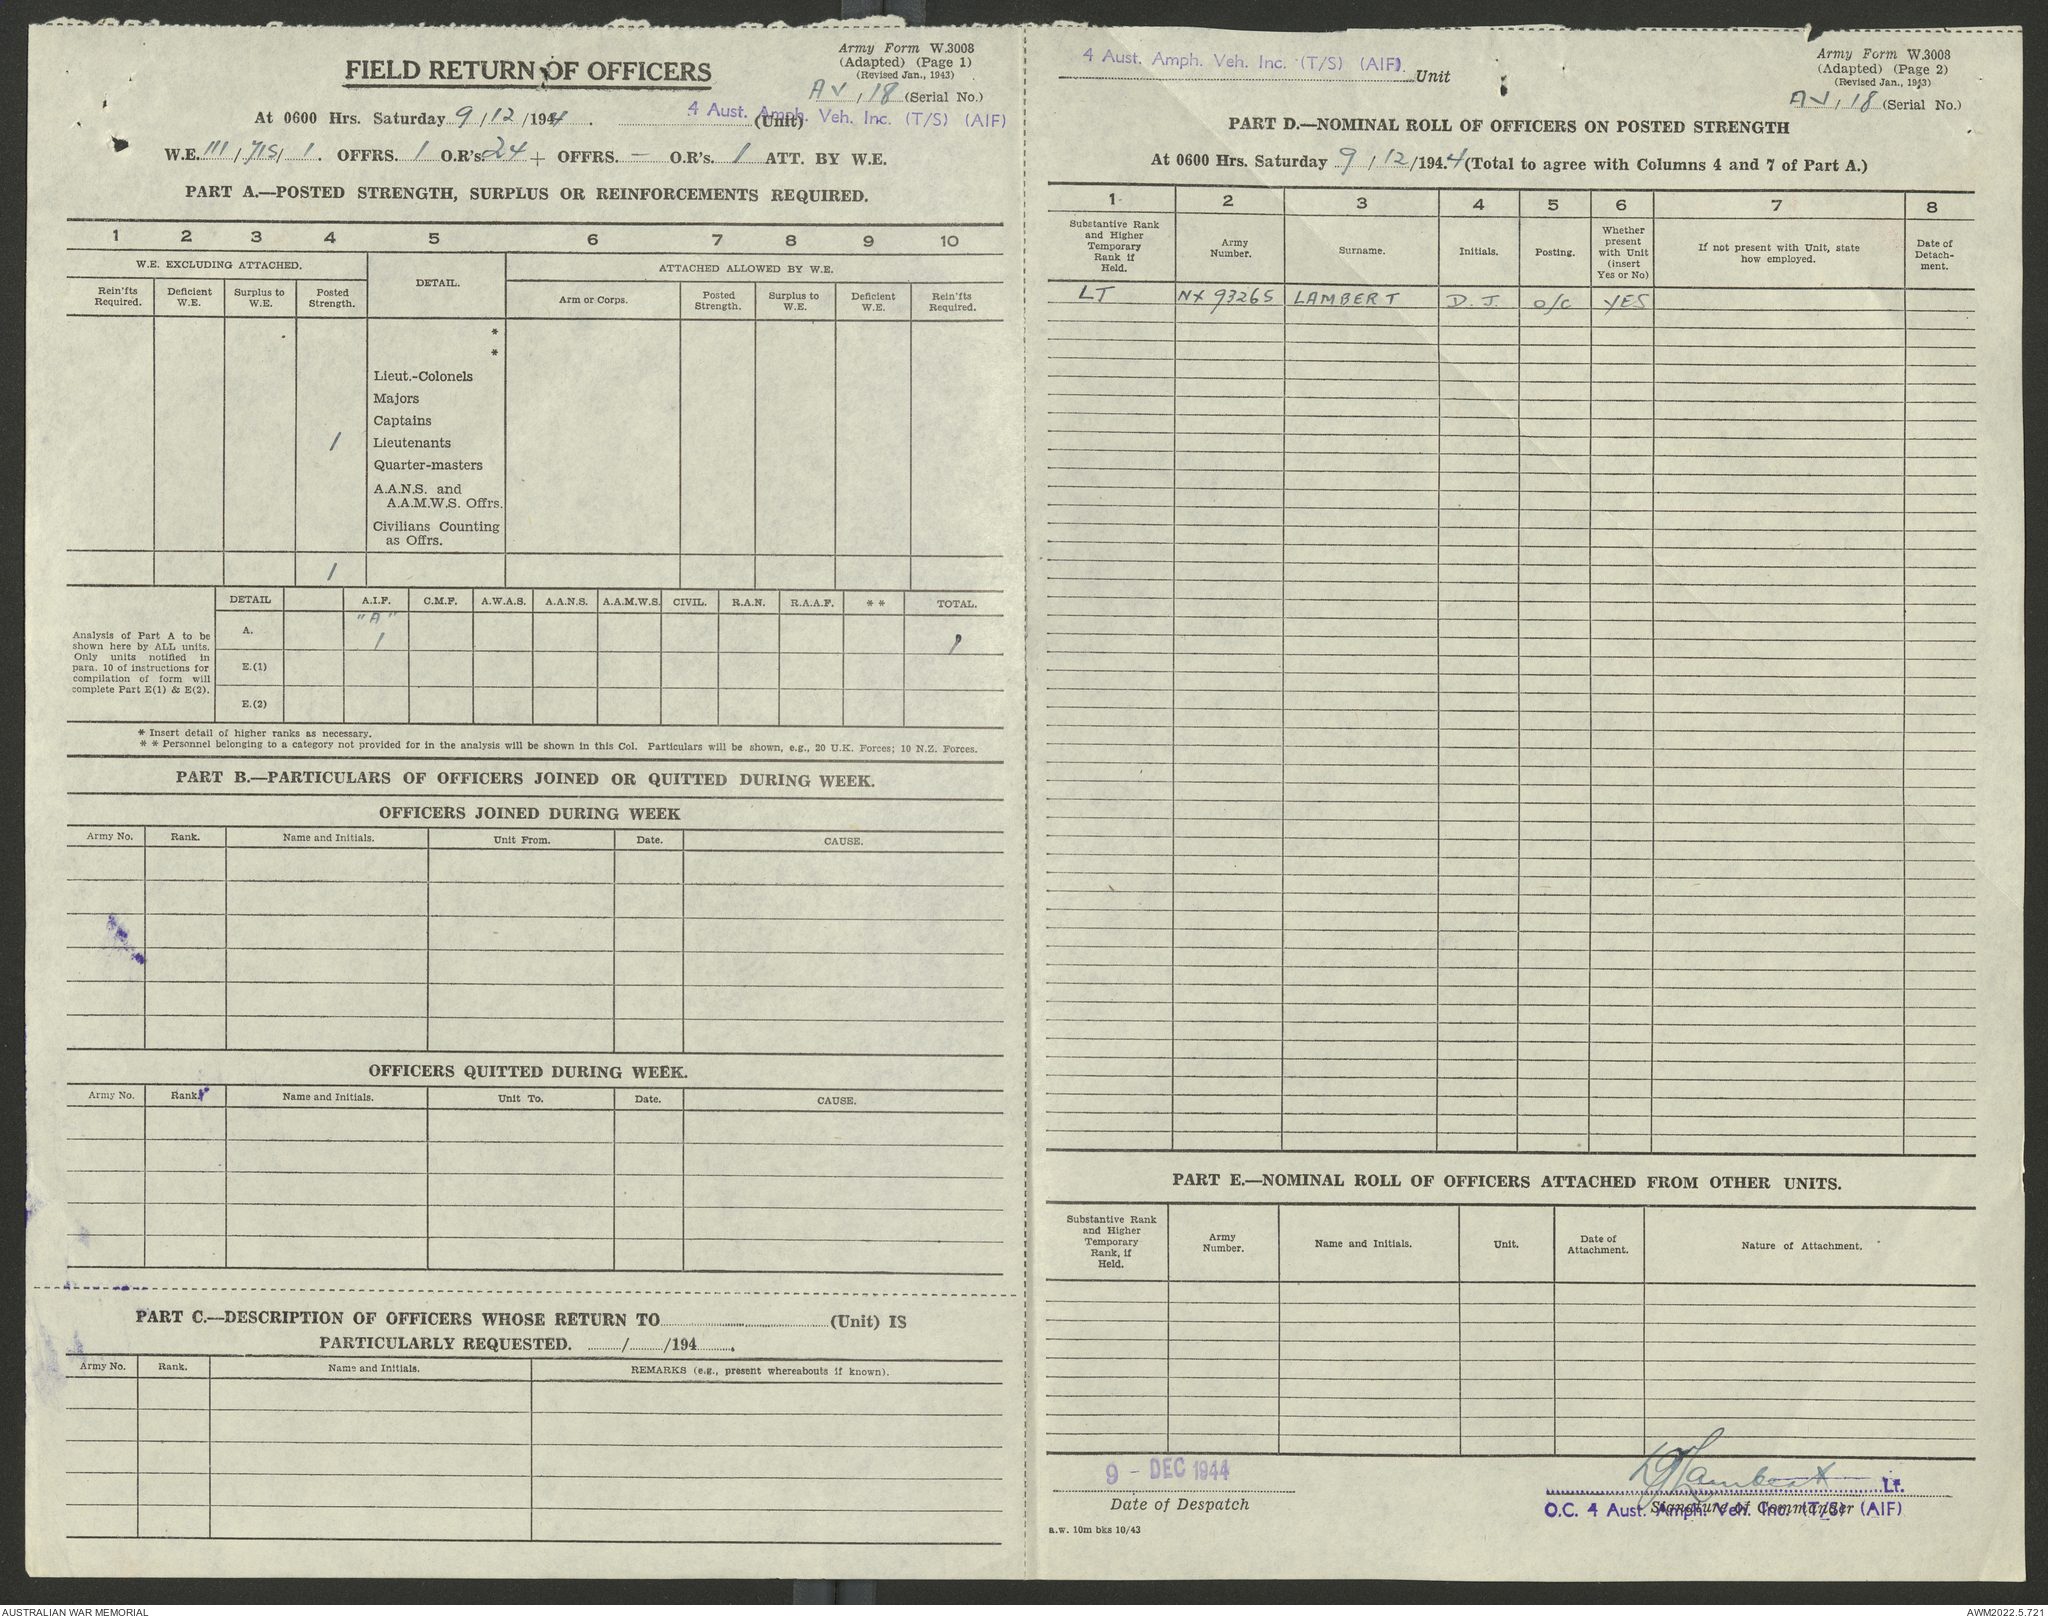 Army Form W.3008
(Adapted) (Page 1)
(Revised Jan., 1943)
FIELD RETURN OF OFFICERS
AV, 18 (Serial No.)
At 0600 Hrs. Saturday 9/12/1944. 4 Aust. Amph. Veh. Inc. (T/S) (AIF) (Unit)
W.E. III / 715 / 1. OFFRS. 1 O.R's. 24 + OFFRS. — O.R's. 1 ATT. BY W.E.
PART A.—POSTED STRENGTH, SURPLUS OR REINFORCEMENTS REQUIRED.
1 2 3 4 5 6 7 8 9 10
W.E. EXCLUDING ATTACHED. DETAIL. ATTACHED ALLOWED BY W.E.
Rein'fts Required. Deficient W.E. Surplus to W.E. Posted Strength. Arm or Corps. Posted Strength. Surplus to W.E. Deficient W.E. Rein'fts Required.
*
*
Lieut.-Colonels
Majors
Captains
1 Lieutenants
Quarter-masters
A.A.N.S. and
A.A.M.W.S. Offrs.
Civilians Counting
as Offrs.
1
DETAIL A.I.F. C.M.F. A.W.A.S. A.A.N.S. A.A.M.W.S. CIVIL. R.A.N. R.A.A.F. * * TOTAL.
Analysis of Part A to be
shown here by ALL units.
Only units notified in
para. 10 of instructions for
compilation of form will
complete Part E(1) & E(2).
"A"
A. 1 1
E.(1)
E.(2)
* Insert detail of higher ranks as necessary.
* * Personnel belonging to a category not provided for in the analysis will be shown in this Col. Particulars will be shown, e.g., 20 U.K. Forces; 10 N.Z. Forces.
PART B.—PARTICULARS OF OFFICERS JOINED OR QUITTED DURING WEEK.
OFFICERS JOINED DURING WEEK
Army No. Rank. Name and Initials. Unit From. Date. CAUSE.
OFFICERS QUITTED DURING WEEK.
Army No. Rank. Name and Initials. Unit To. Date. CAUSE.
PART C.—DESCRIPTION OF OFFICERS WHOSE RETURN TO (Unit) IS
PARTICULARLY REQUESTED. / /194 .
Army No. Rank. Name and Initials. REMARKS (e.g., present whereabouts if known).
4 Aust. Amph. Veh. Inc. (T/S) (AIF). Unit
Army Form W.3008
(Adapted) (Page 2)
(Revised Jan., 1943)
AV, 18 (Serial No.)
PART D.—NOMINAL ROLL OF OFFICERS ON POSTED STRENGTH
At 0600 Hrs. Saturday 9/12/1944 (Total to agree with Columns 4 and 7 of Part A.)
1 2 3 4 5 6 7 8
Substantive Rank and Higher Temporary Rank if Held. Army Number. Surname. Initials. Posting. Whether present with Unit (insert Yes or No) If not present with Unit, state how employed. Date of Detach-ment.
LT NX 93265 LAMBERT D. J. O/C YES
PART E.—NOMINAL ROLL OF OFFICERS ATTACHED FROM OTHER UNITS.
Substantive Rank and Higher Temporary Rank, if Held. Army Number. Name and Initials. Unit. Date of Attachment. Nature of Attachment.
9 - DEC 1944
Date of Despatch
DJLambert Lt.
Signature of Commander
O.C. 4 Aust. Amph. Veh. Inc. (T/S) (AIF)
a.w. 10m bks 10/43
AUSTRALIAN WAR MEMORIAL
AWM2022.5.721